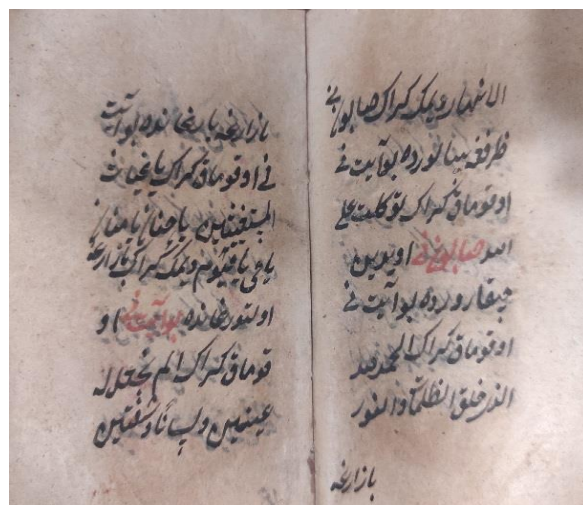 الانهار دیمک کراک صابون نی
ظرفغه سالنورده بو آیت نی
اوقوماق کراک توکلت علی
الله صابون نی اویدین
چیقارورده بو آیت نی
اوقوماق کراک الحمد لله
الذی خلق الظلمات والنور
بازارغه
بازارغه بارغانده بو آیت
نی اوقوماق کراک یا غیاث
المستغیثین یا حنان یا منان
یا حی یا قیوم دیمک کراک بازارغه
اولتورغانده بو آیت نی او
قوماق کراک الم نجعل له
عینین ولسانا وشفتین